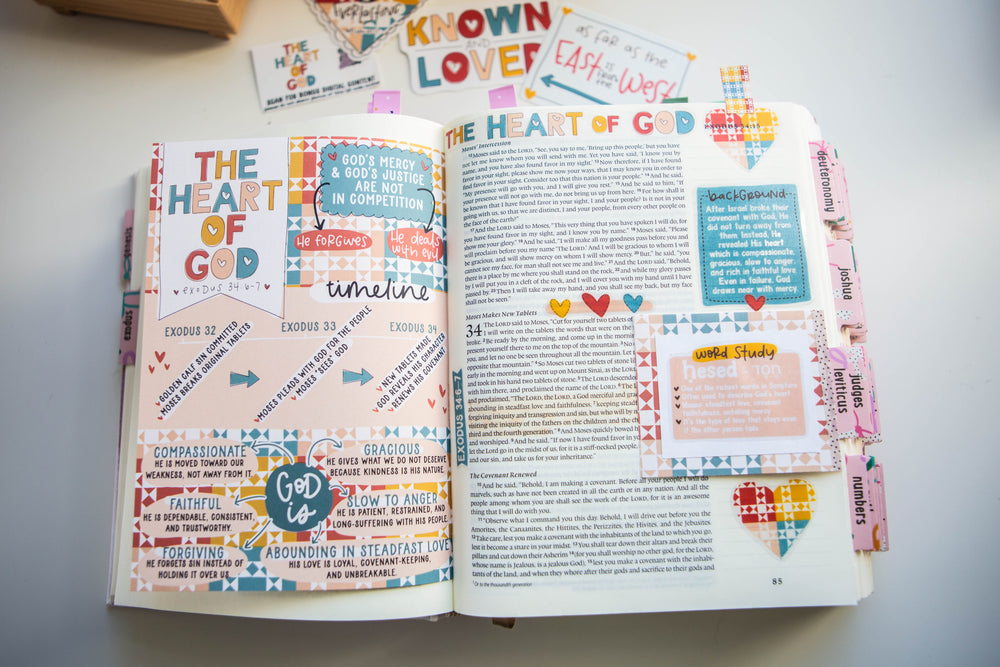 everlasting
THE
HEART
OF
GOD
KNOWN
AND
LOVED
as far as the
EAST is
from
the West
THE HEART OF GOD
EXODUS 34:6-7
THE
HEART
OF
GOD
exodus 34:6-7
GOD'S MERCY
& GOD'S JUSTICE
ARE NOT
IN COMPETITION
He forgives
He deals
with evil
timeline
EXODUS 32
EXODUS 33
EXODUS 34
GOLDEN CALF SIN COMMITTED
MOSES BREAKS ORIGINAL TABLETS
MOSES PLEADS WITH GOD FOR THE PEOPLE
MOSES "SEES" GOD
NEW TABLETS MADE
GOD REVEALS HIS CHARACTER
RENEWS HIS COVENANT
COMPASSIONATE
HE IS MOVED TOWARD OUR
WEAKNESS, NOT AWAY FROM IT.
GRACIOUS
HE GIVES WHAT WE DO NOT DESERVE
BECAUSE KINDNESS IS HIS NATURE.
GOD
is
FAITHFUL
HE IS DEPENDABLE, CONSISTENT,
AND TRUSTWORTHY.
SLOW TO ANGER
HE IS PATIENT, RESTRAINED, AND
LONG-SUFFERING WITH HIS PEOPLE.
FORGIVING
HE FORGETS SIN INSTEAD OF
HOLDING IT OVER US.
ABOUNDING IN STEADFAST LOVE
HIS LOVE IS LOYAL, COVENANT-KEEPING,
AND UNBREAKABLE.
Moses' Intercession
12 Moses said to the LORD, "See, you say to me, 'Bring up this people,' but you have
not let me know whom you will send with me. Yet you have said, 'I know you by
name, and you have also found favor in my sight.' 13 Now therefore, if I have found
favor in your sight, please show me now your ways, that I may know you in order to
find favor in your sight. Consider too that this nation is your people." 14 And he said,
"My presence will go with you, and I will give you rest." 15 And he said to him, "If
your presence will not go with me, do not bring us up from here. 16 For how shall it
be known that I have found favor in your sight, I and your people? Is it not in your
going with us, so that we are distinct, I and your people, from every other people on
the face of the earth?"
17 And the LORD said to Moses, "This very thing that you have spoken I will do, for
you have found favor in my sight, and I know you by name." 18 Moses said, "Please
show me your glory." 19 And he said, "I will make all my goodness pass before you and
will proclaim before you my name 'The LORD.' And I will be gracious to whom I will
be gracious, and will show mercy on whom I will show mercy. 20 But," he said, "you
cannot see my face, for man shall not see me and live." 21 And the LORD said, "Behold,
there is a place by me where you shall stand on the rock, 22 and while my glory passes
by I will put you in a cleft of the rock, and I will cover you with my hand until I have
passed by. 23 Then I will take away my hand, and you shall see my back, but my face
shall not be seen."
Moses Makes New Tablets
34 The LORD said to Moses, "Cut for yourself two tablets of
I will write on the tablets the words that were on the
broke. 2 Be ready by the morning, and come up in the morning
present yourself there to me on the top of the mountain. 3 No
you, and let no one be seen throughout all the mountain. Let
opposite that mountain." 4 So Moses cut two tablets of stone
early in the morning and went up on Mount Sinai, as the LORD
and took in his hand two tablets of stone. 5 The LORD descended
with him there, and proclaimed the name of the LORD. 6 The
and proclaimed, "The LORD, the LORD, a God merciful and gracious
abounding in steadfast love and faithfulness, 7 keeping steadfast
forgiving iniquity and transgression and sin, but who will by
visiting the iniquity of the fathers on the children and the
third and the fourth generation." 8 And Moses quickly bowed
and worshiped. 9 And he said, "If now I have found favor in
let the Lord go in the midst of us, for it is a stiff-necked people,
and our sin, and take us for your inheritance."
EXODUS 34:6-7
The Covenant Renewed
10 And he said, "Behold, I am making a covenant. Before all your people I will do
marvels, such as have not been created in all the earth or in any nation. And all the
people among whom you are shall see the work of the LORD, for it is an awesome
thing that I will do with you.
11 "Observe what I command you this day. Behold, I will drive out before you the
Amorites, the Canaanites, the Hittites, the Perizzites, the Hivites, and the Jebusites.
12 Take care, lest you make a covenant with the inhabitants of the land to which you go,
lest it become a snare in your midst. 13 You shall tear down their altars and break their
pillars and cut down their Asherim 14 (for you shall worship no other god, for the LORD,
whose name is Jealous, is a jealous God), 15 lest you make a covenant with the inhabi-
tants of the land, and when they whore after their gods and sacrifice to their gods and
1 Or to the thousandth generation
85
background
After Israel broke their
covenant with God, He
did not turn away from
them. Instead, He
revealed His heart
which is compassionate,
gracious, slow to anger,
and rich in faithful love.
Even in failure, God
draws near with mercy.
word study
hesed
One of the richest words in Scripture
Often used to describe God's heart
Means: steadfast love, covenant
faithfulness, unfailing mercy
It's the type of love that stays even
if the other person fails
genesis
exodus
deuteronomy
joshua
judges
leviticus
numbers